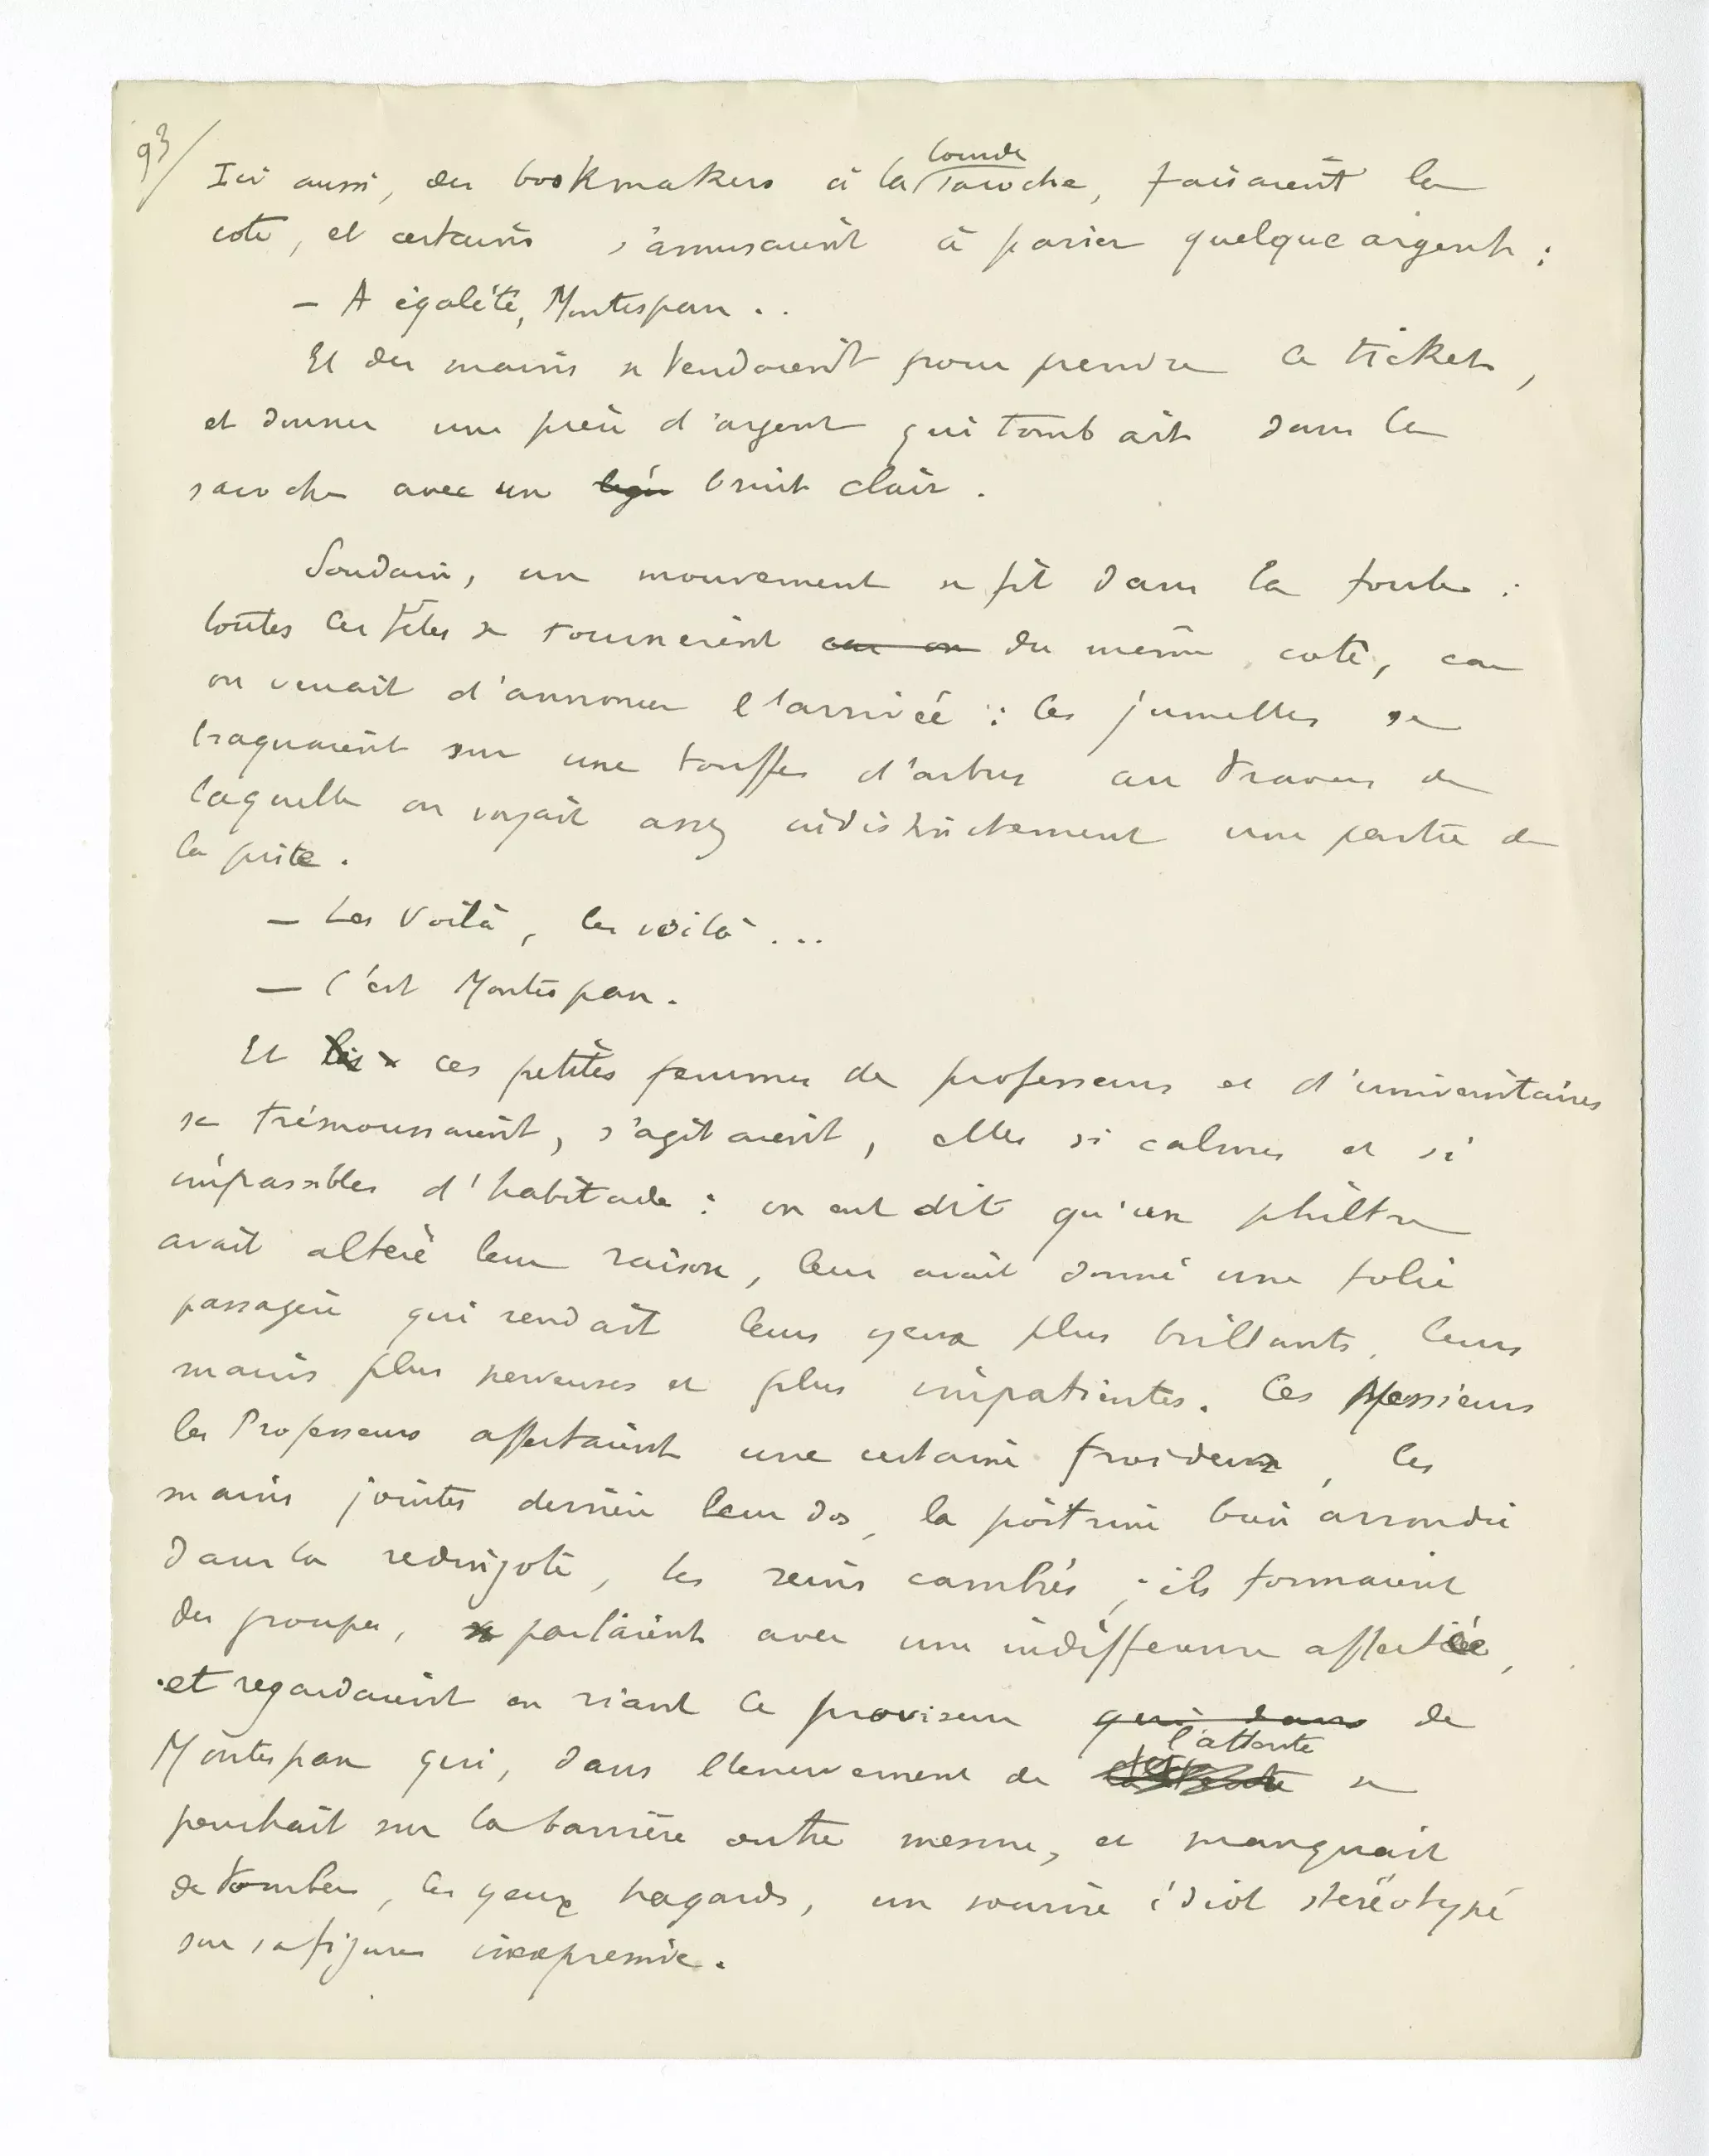 93/
Ici aussi, des bookmakers à la lourde sacoche, faisaient la
cote, et certains s'amusaient à parier quelque argent :
– A égalité, Montespan . .
Et des mains se tendaient pour prendre le ticket,
et donner une pièce d'argent qui tombait dans la
sacoche avec un léger bruit clair.
Soudain, un mouvement se fit dans la foule :
toutes les têtes se tournèrent car on du même coté, car
on venait d'annoncer l'arrivée : les jumelles se
braquaient sur une touffe d'arbres au travers de
laquelle on voyait assez indistinctement une partie de
la piste.
– Les voilà, les voilà ...
– C'est Montespan.
Et les ces petites femmes de professeurs et d'universitaires
se trémoussaient, s'agitaient, elles si calmes et si
impassibles d'habitude : on eut dit qu'un philtre
avait altéré leur raison, leur avait donné une folie
passagère qui rendait leurs yeux plus brillants, leurs
mains plus nerveuses et plus impatientes. Ces Messieurs
les Professeurs affectaient une certaine froideur, les
mains jointes derrière leur dos, la poitrine bien arrondie
dans la redingote, les reins cambrés ; ils formaient
des groupes, parlaient avec une indifférence affectée,
et regardaient en riant le proviseur qui dans de
Montespan qui, dans l'énervement de l'attente se
penchait sur la barrière outre mesure, et manquait
de tomber, les yeux hagards, un sourire idiot stéréotypé
sur sa figure inexpressive.